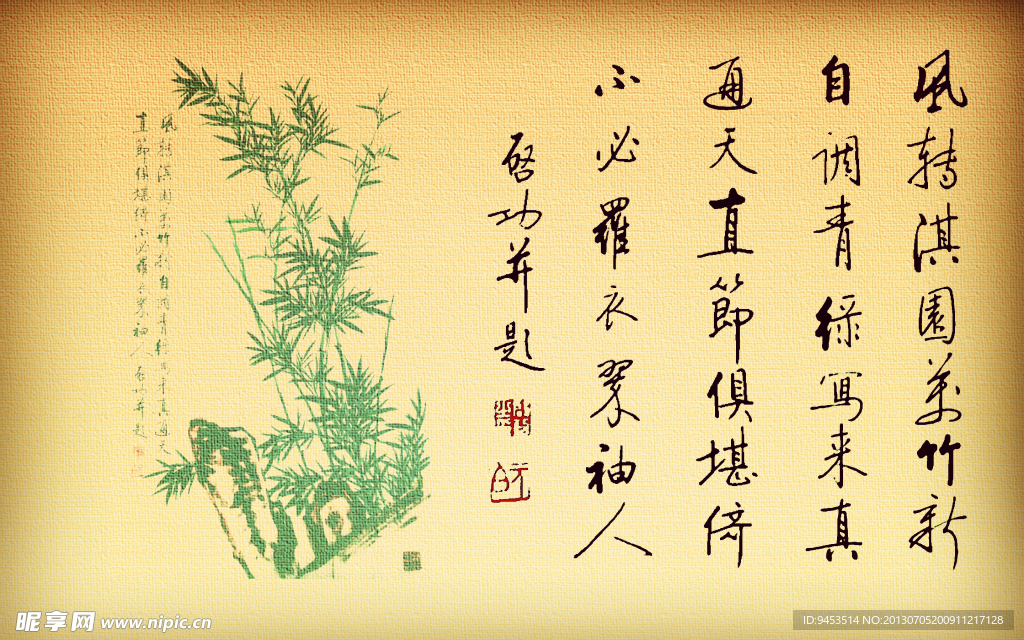 風轉淇園萬竹新
自調青綠寫来真
通天直節俱堪倚
不必羅衣翠袖人
啓功并題
風轉淇園萬竹新自調青綠寫来真通天
直節俱堪倚不必羅衣翠袖人啓功并題
昵享网 www.nipic.cn
ID:9453514 NO:20130705200911217128